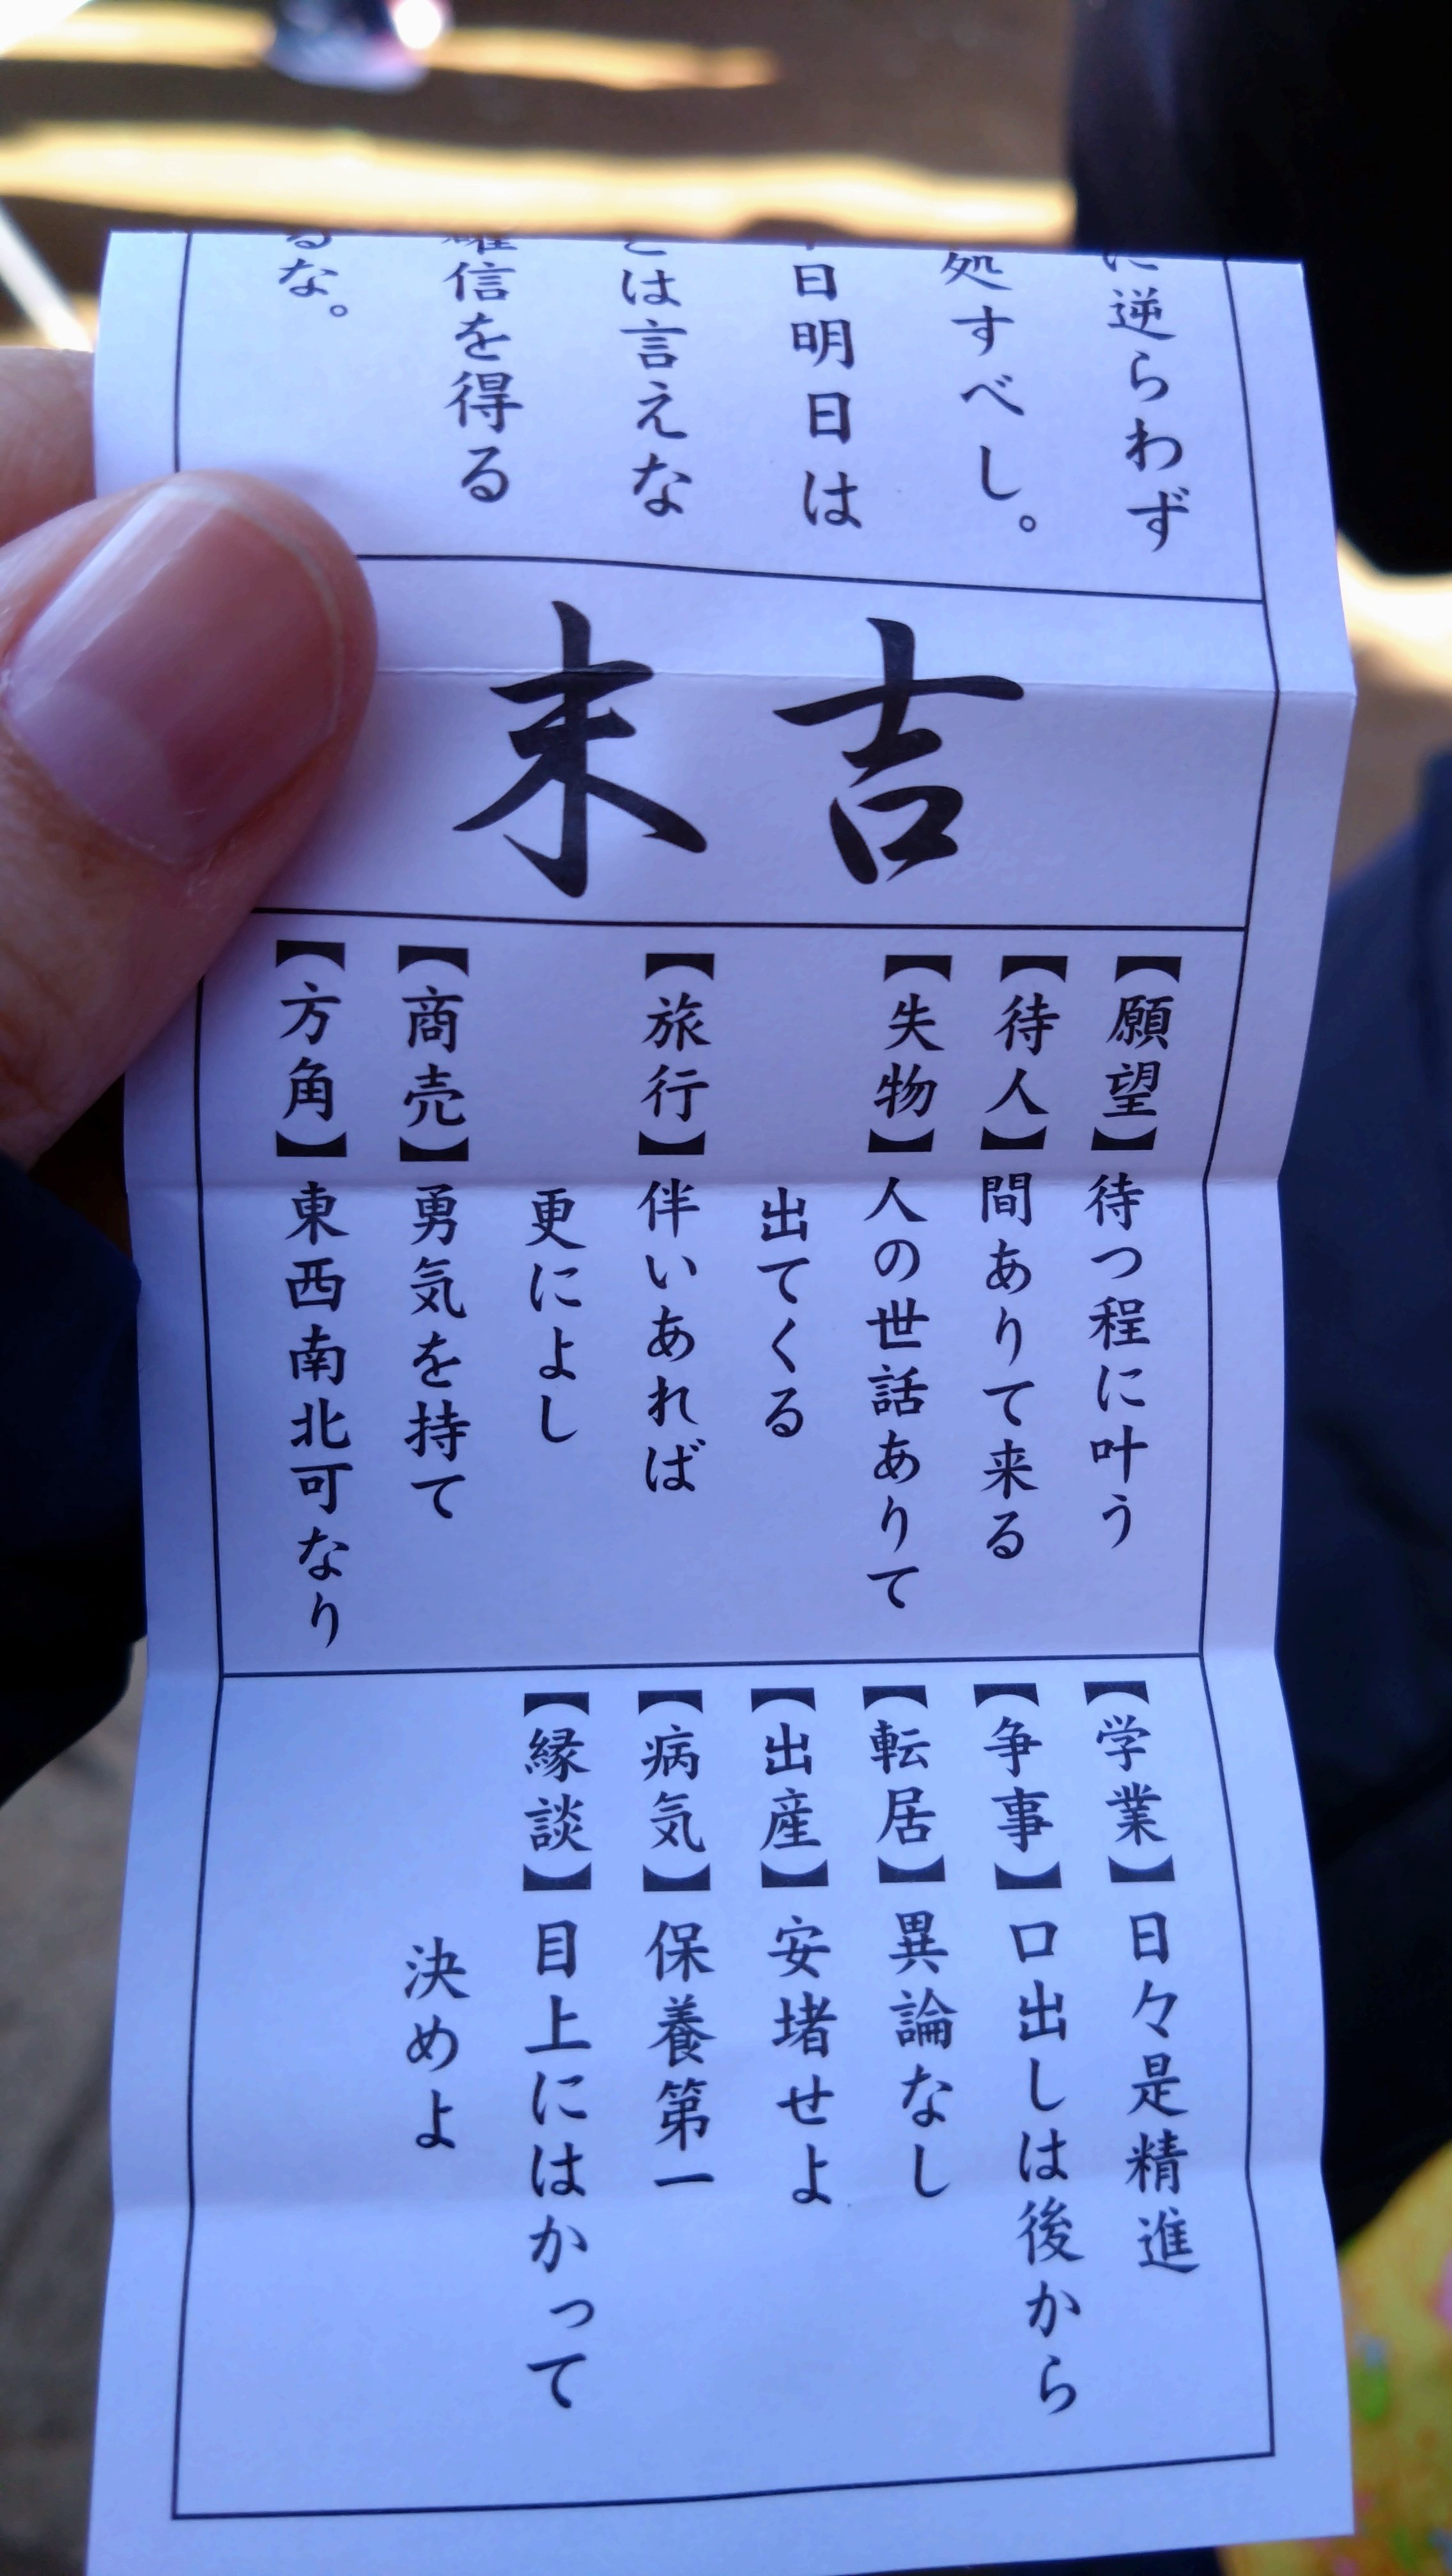 に逆らわず
処すべし。
日明日は
とは言えな
信を得る
るな。
末吉
【願望】待つ程に叶う
【待人】間ありて来る
【失物】人の世話ありて
出てくる
【旅行】伴いあれば
更によし
【商売】勇気を持て
【方角】東西南北可なり
【学業】日々是精進
【争事】口出しは後から
【転居】異論なし
【出産】安堵せよ
【病気】保養第一
【縁談】目上にはかって
決めよ